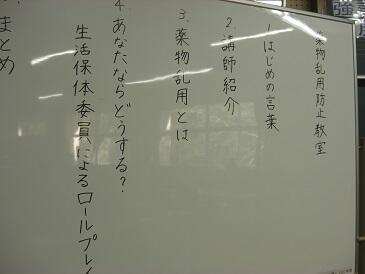 薬物乱用防止教室
1 はじめの言葉
2. 講師紹介
3. 薬物乱用とは
4. あなたならどうする?
生活保体委員によるロールプレイ
まとめ
強